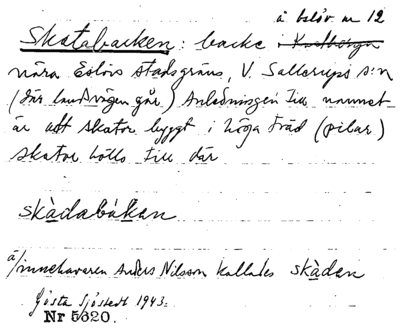 å belöv. nr 12
Skatabacken: backe i Kvalberga
nära Eslövs stadsgräns, V. Sallerups s:n
(där landsvägen går.) Anledningen till namnet
är att skator byggt i höga träd (pilar)
skator hölls till där
skàdabåkan
å/innehavaren Anders Nilsson kallades skàdan
Gösta Sjöstedt 1943.
Nr 5620.